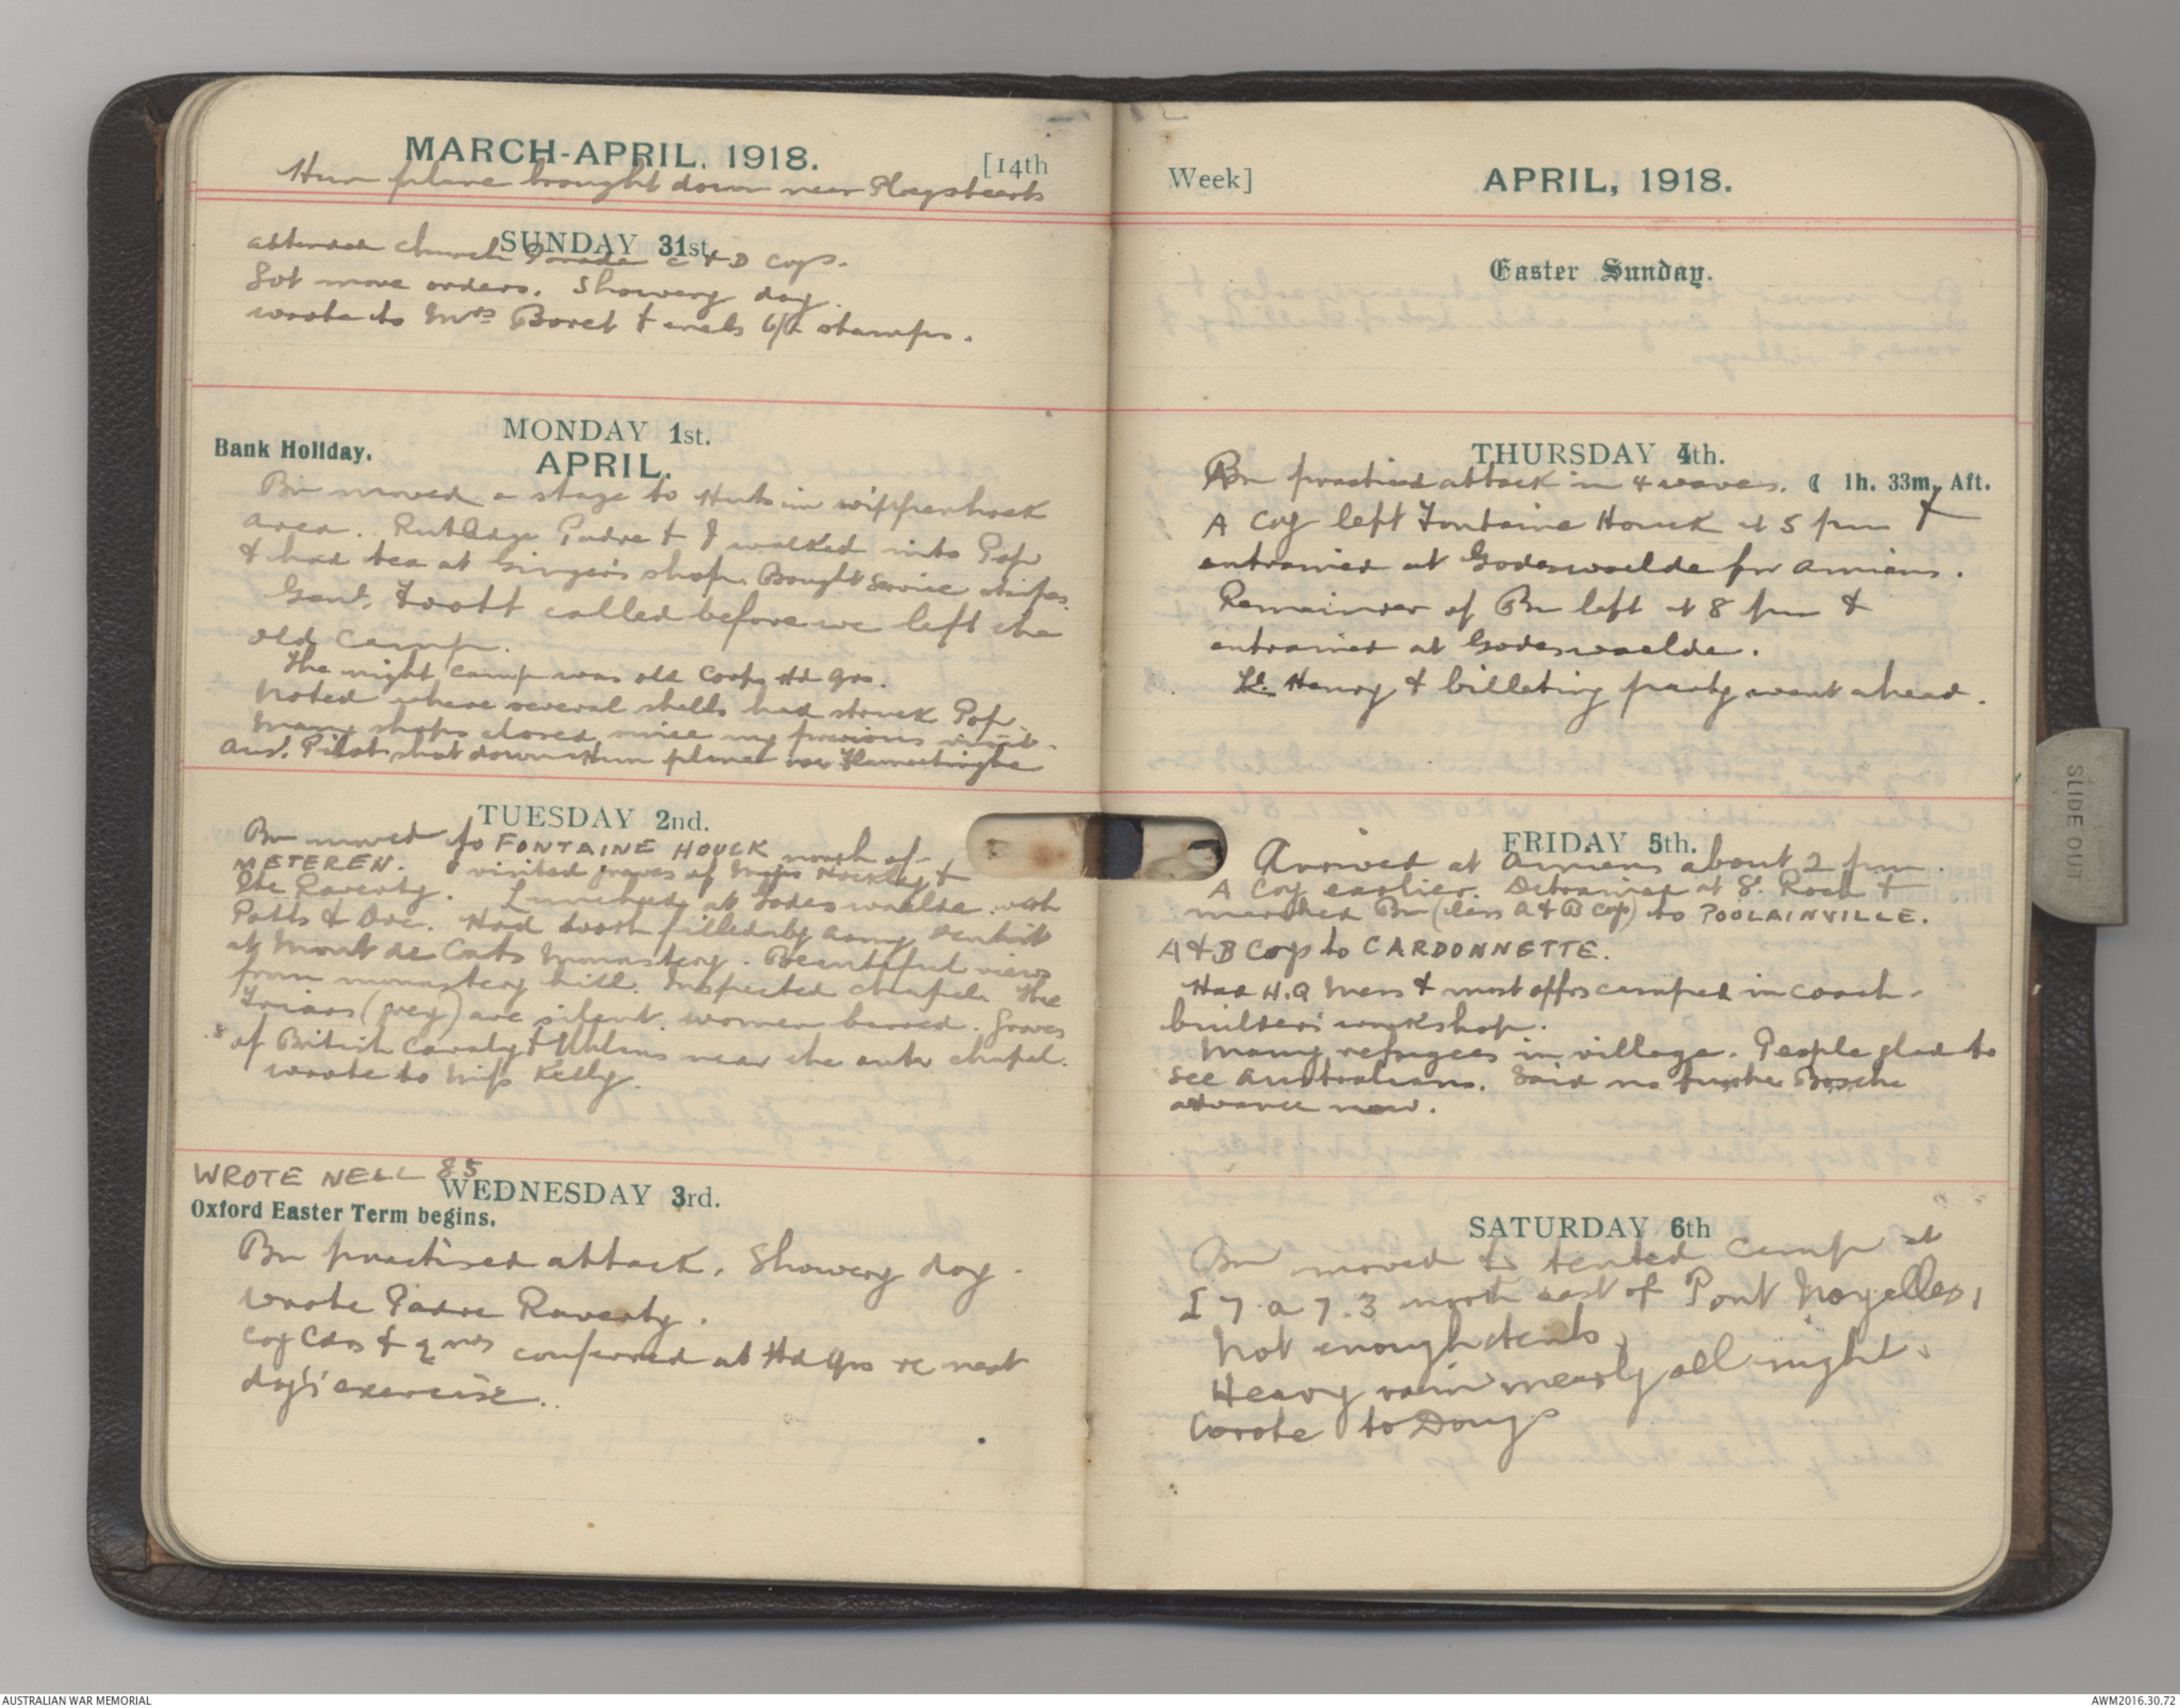 MARCH-APRIL, 1918.
[14th
Hun plane brought down near Plugstreet
SUNDAY 31st.
attended church Parade C & D Coys.
Got move orders. Showery day.
wrote to Mrs Boret & encls 6/- stamps.
MONDAY 1st.
Bank Holiday.
APRIL.
Bn moved a stage to Huts in wippenhoek
area. Rutledge Padre & I walked into Pop
& had tea at Gingers shop. Bought Service stripes.
Genl. Foott called before we left the
old camp.
The night camp was old Corps Hd Qrs.
Noted where several shells had struck Pop.
Many shops closed since my previous visit.
Aus. Pilot shot down Hun plane
TUESDAY 2nd.
Bn moved to FONTAINE HOUCK north of
METEREN. I visited graves of Major &
Pte Raverty. Lunched at Godeswaelde with
Potts & Doc. Had tooth filled by army dentist
at Mont de Cats Monastery. Beautiful views
from monastery hill. Inspected chapel. The
Friars (grey) are silent. women barred. Graves
of British Cavalry & Uhlans near the outer chapel.
wrote to Miss Kelly.
WROTE NELL 85
WEDNESDAY 3rd.
Oxford Easter Term begins.
Bn practised attack. Showery day.
wrote Padre Raverty.
Coy Cdrs & qmrs conferred at Hd Qrs re next
day's exercise.
Week]
APRIL, 1918.
Easter Sunday.
THURSDAY 4th.
Bn practised attack in 4 waves. ☾ 1h. 33m. Aft.
A Coy left Fontaine Houck at 5 pm &
entrained at Godeswaelde for Amiens.
Remainder of Bn left at 8 pm &
entrained at Godeswaelde.
Lt. Henry & billeting party went ahead.
FRIDAY 5th.
Arrived at Amiens about 2 pm
A Coy earlier. Detrained at St. Roch &
marched Bn (less A & B Coy) to POOLAINVILLE.
A & B Coys to CARDONNETTE.
Had H.Q Mess & most offrs camped in coach-
builders workshop.
Many refugees in village. People glad to
see Australians. Said no further Bosche
advance now.
SATURDAY 6th
Bn moved to tented camp at
I 7 a 7.3 north east of Pont Noyelles,
Not enough tents.
Heavy rain nearly all night.
Wrote to Doug
SLIDE OUT
AUSTRALIAN WAR MEMORIAL
AWM2016.30.72